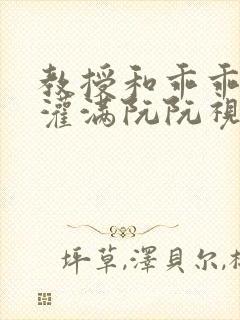 教授和乖乖
灌满阮阮視
坪草,澤貝尔,